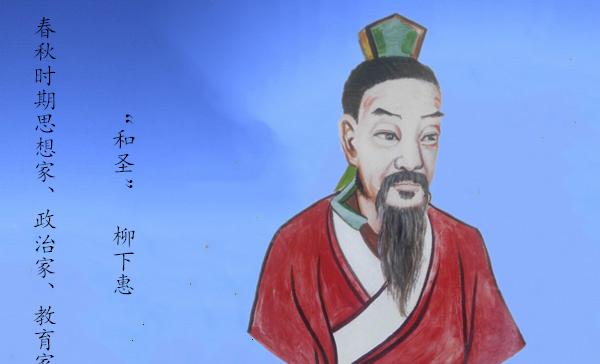 春秋时期思想家、政治家、教育家
“和圣” 柳下惠